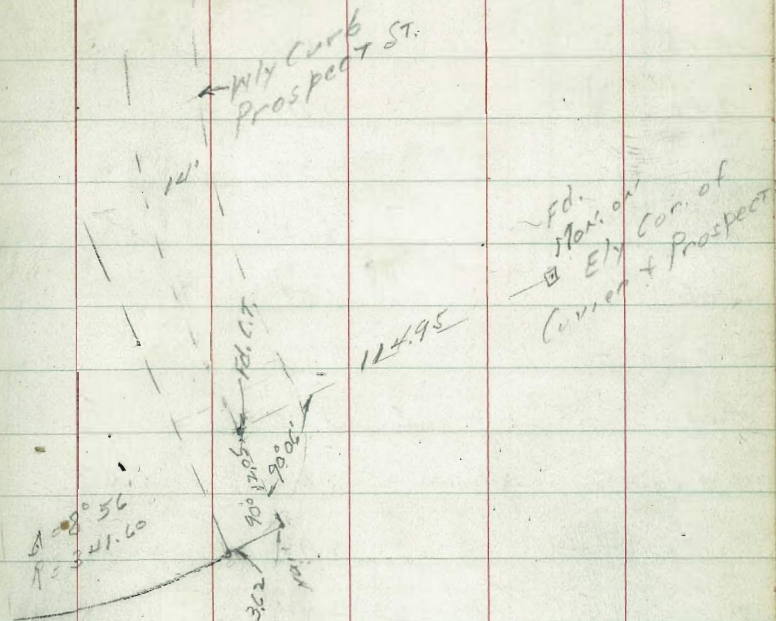 Wly Curb
Prospect ST.
14'
Fd.
Mon. on
Ely Cor. of
Cuvier + Prospect
114.95
Fd. C.T.
90°
12.05
90°05'
Δ = 8° 56'
R = 341.60
3.62
Nail